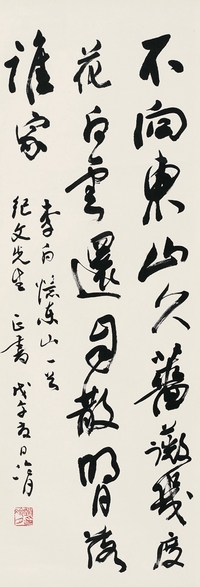 不向東山久薔薇幾度
花白雲還自散明月落
誰家
李白憶東山一首
紀文先生 正書 戊午夏日